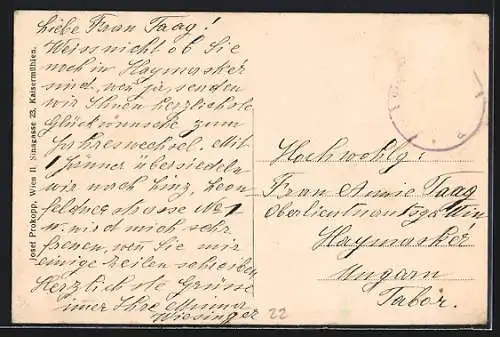 Josef Prokopp, Wien II, Sinagasse 23, Kaisermühlen.
Liebe Frau Taag!
Weiss nicht ob Sie
noch in Haymaskér
sind, wen ja, senden
wir Ihnen herzlichste
Glückwünsche zum
Jahreswechsel. Mit
1 Jänner übersiedeln
wir nach Linz, Leon
feldnerstrasse No 1
u. wird mich sehr
freuen, wen Sie mir
einige Zeilen schreiben
Herzlichste Grüsse
immer Ihre
Wiesinger
Hochwohlg:
Frau Annie Taag
Oberlieutnantsga
Haymaskér
Ungarn
Tabor.
22